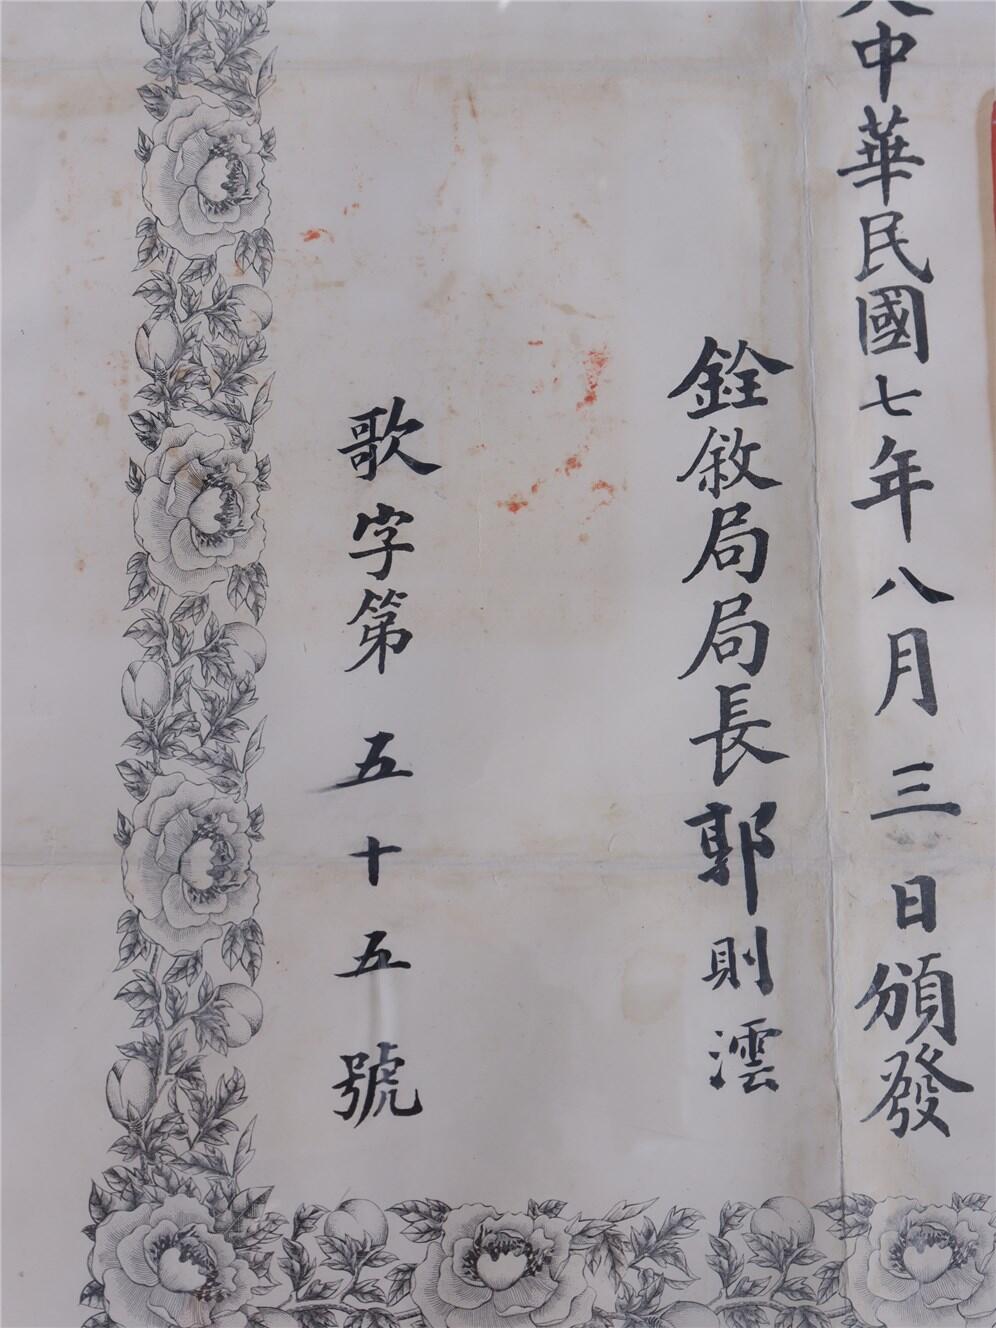 大中華民國七年八月三日頒發
銓敘局局長郭則澐
歌字第五十五號